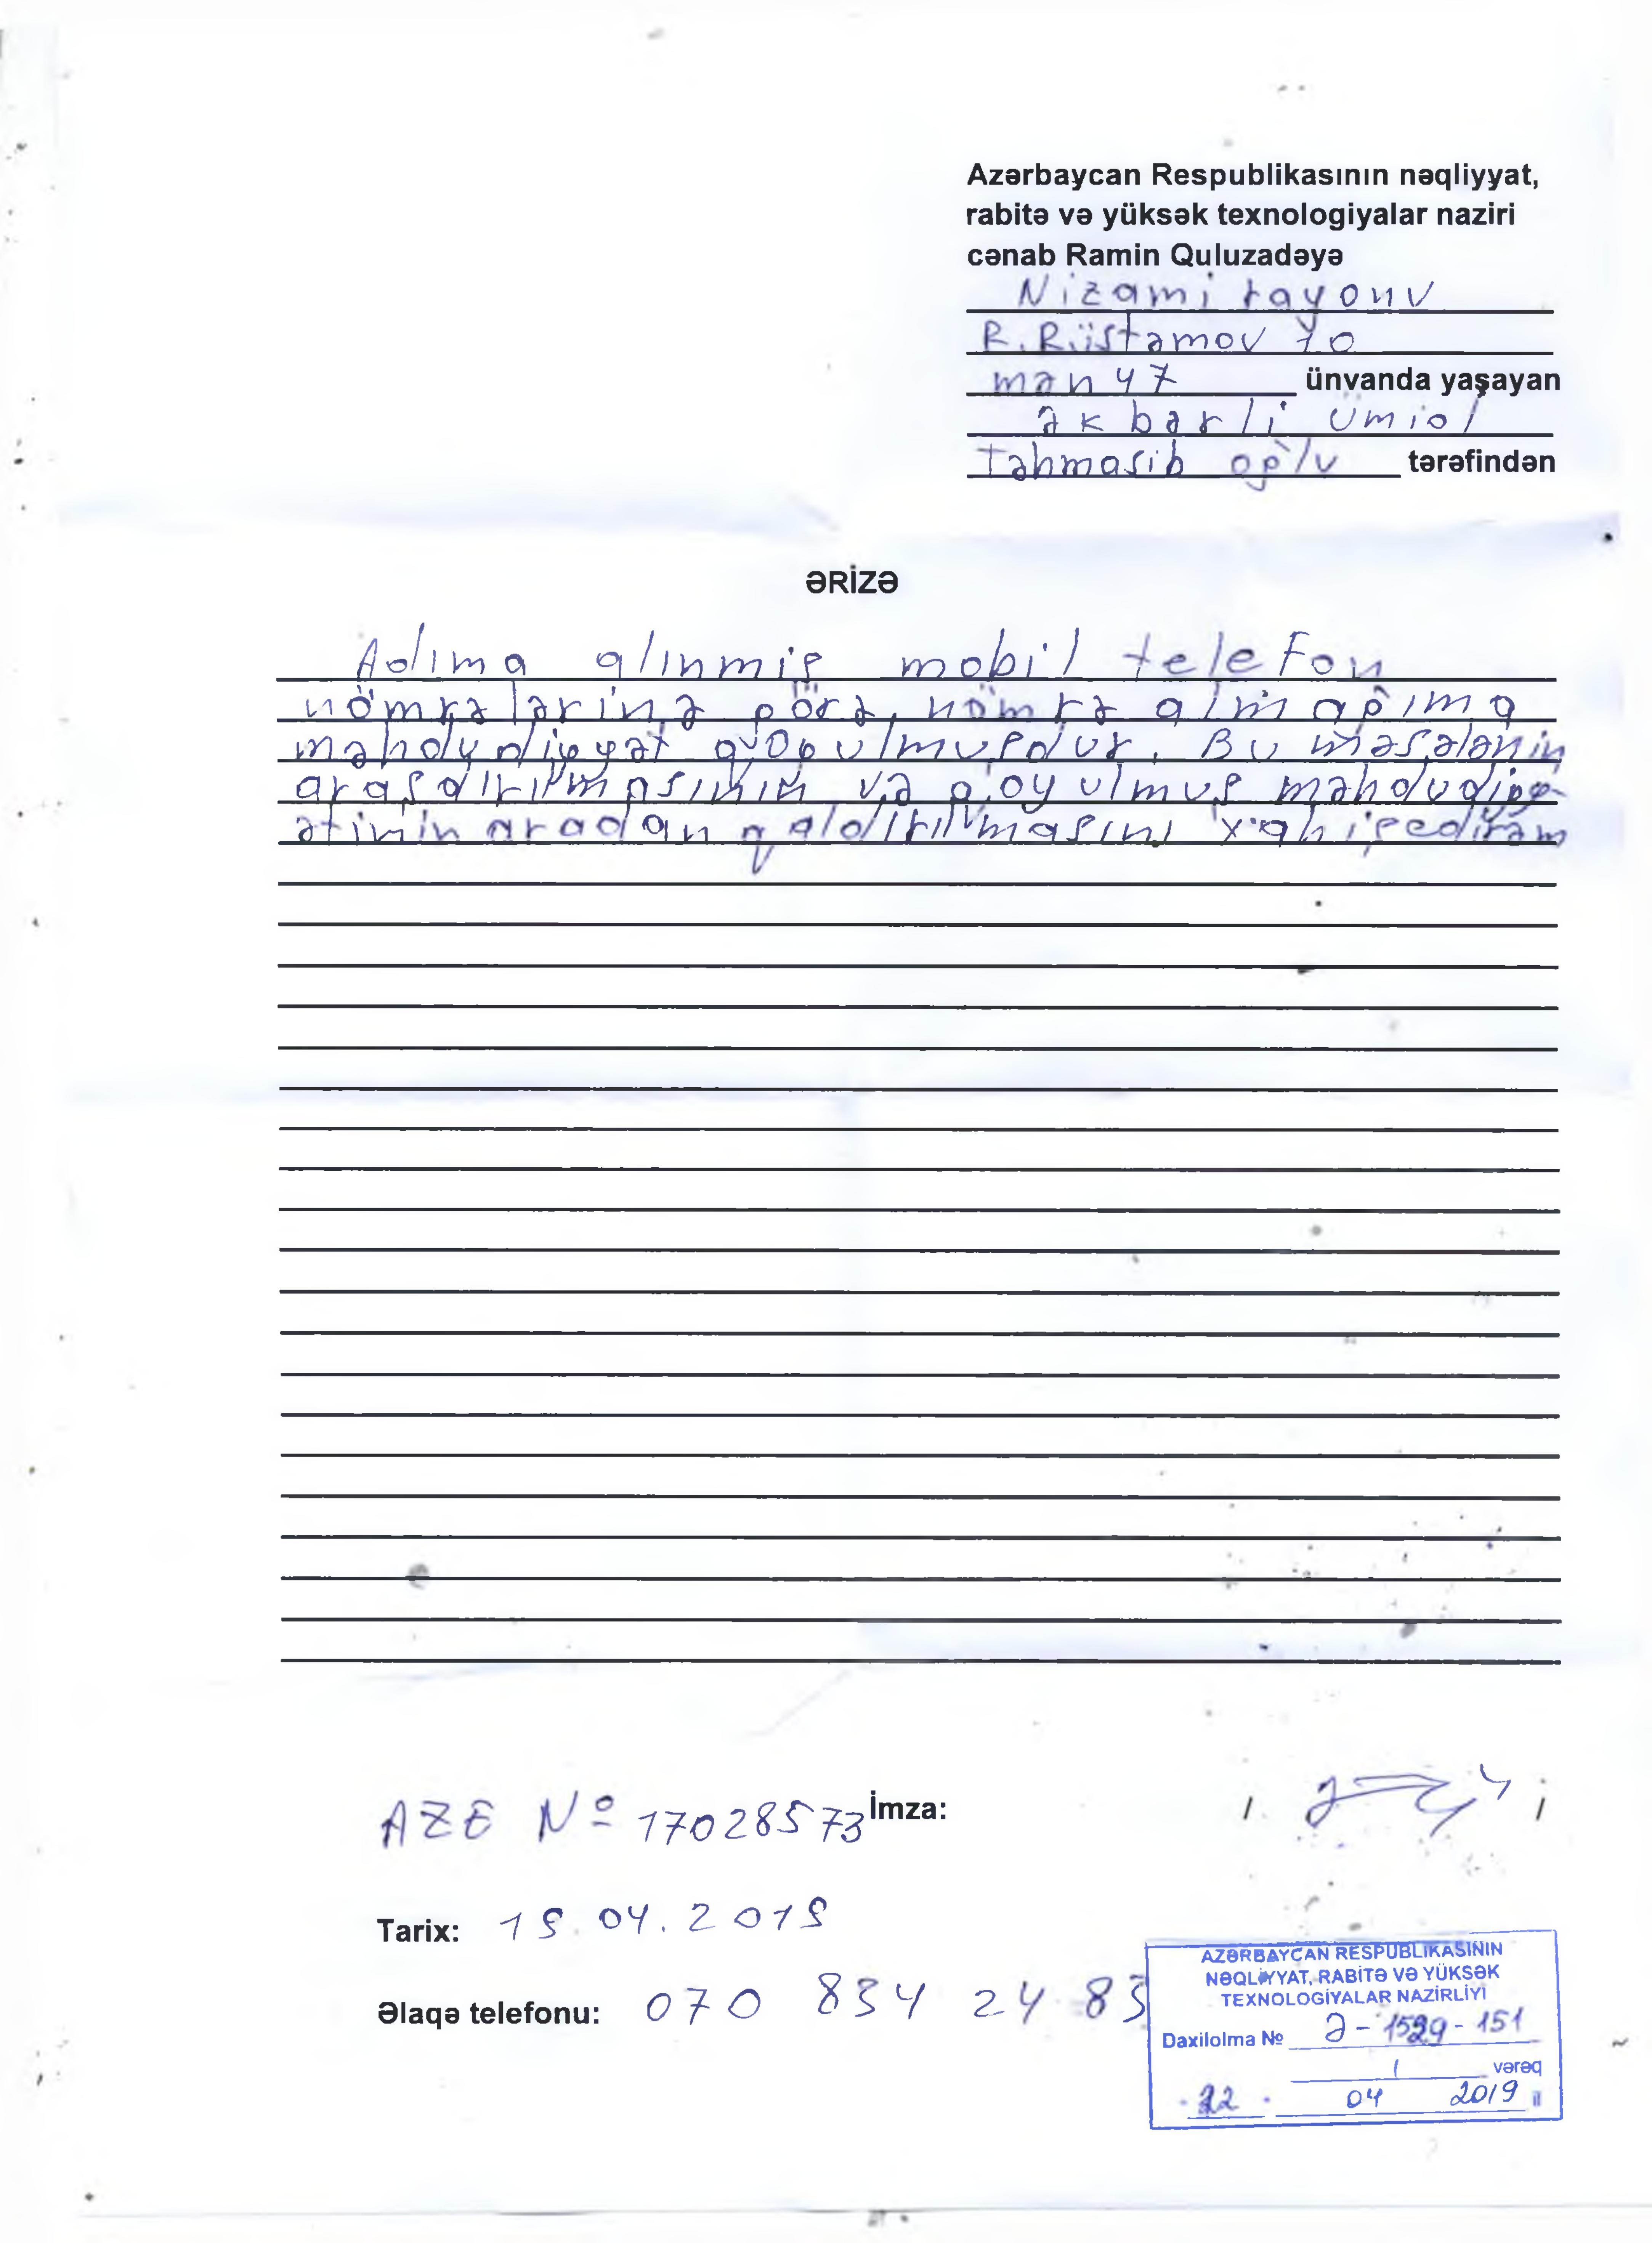 Azərbaycan Respublikasının nəqliyyat,
rabitə və yüksək texnologiyalar naziri
cənab Ramin Quluzadəyə
Nizami rayonu
R.Rüstəmov 10
mən 47 ünvanda yaşayan
Əkbərli Ümid
Təhmasib oğlu tərəfindən
ƏRİZƏ
Adıma alınmış mobil telefon
nömrələrinə görə, nömrə almağıma
məhdudiyyət qoyulmuşdur. Bu məsələnin
araşdırılmasının və qoyulmuş məhdudiyy-
ətinin aradan qaldırılmasını xahiş edirəm
AZE № 17028573 İmza:
Tarix: 19.04.2019
Əlaqə telefonu: 070 834 24 83
AZƏRBAYCAN RESPUBLİKASININ
NƏQLİYYAT, RABİTƏ VƏ YÜKSƏK
TEXNOLOGİYALAR NAZİRLİYİ
Daxilolma № Ə-1529-151
1 vərəq
22 04 2019 il